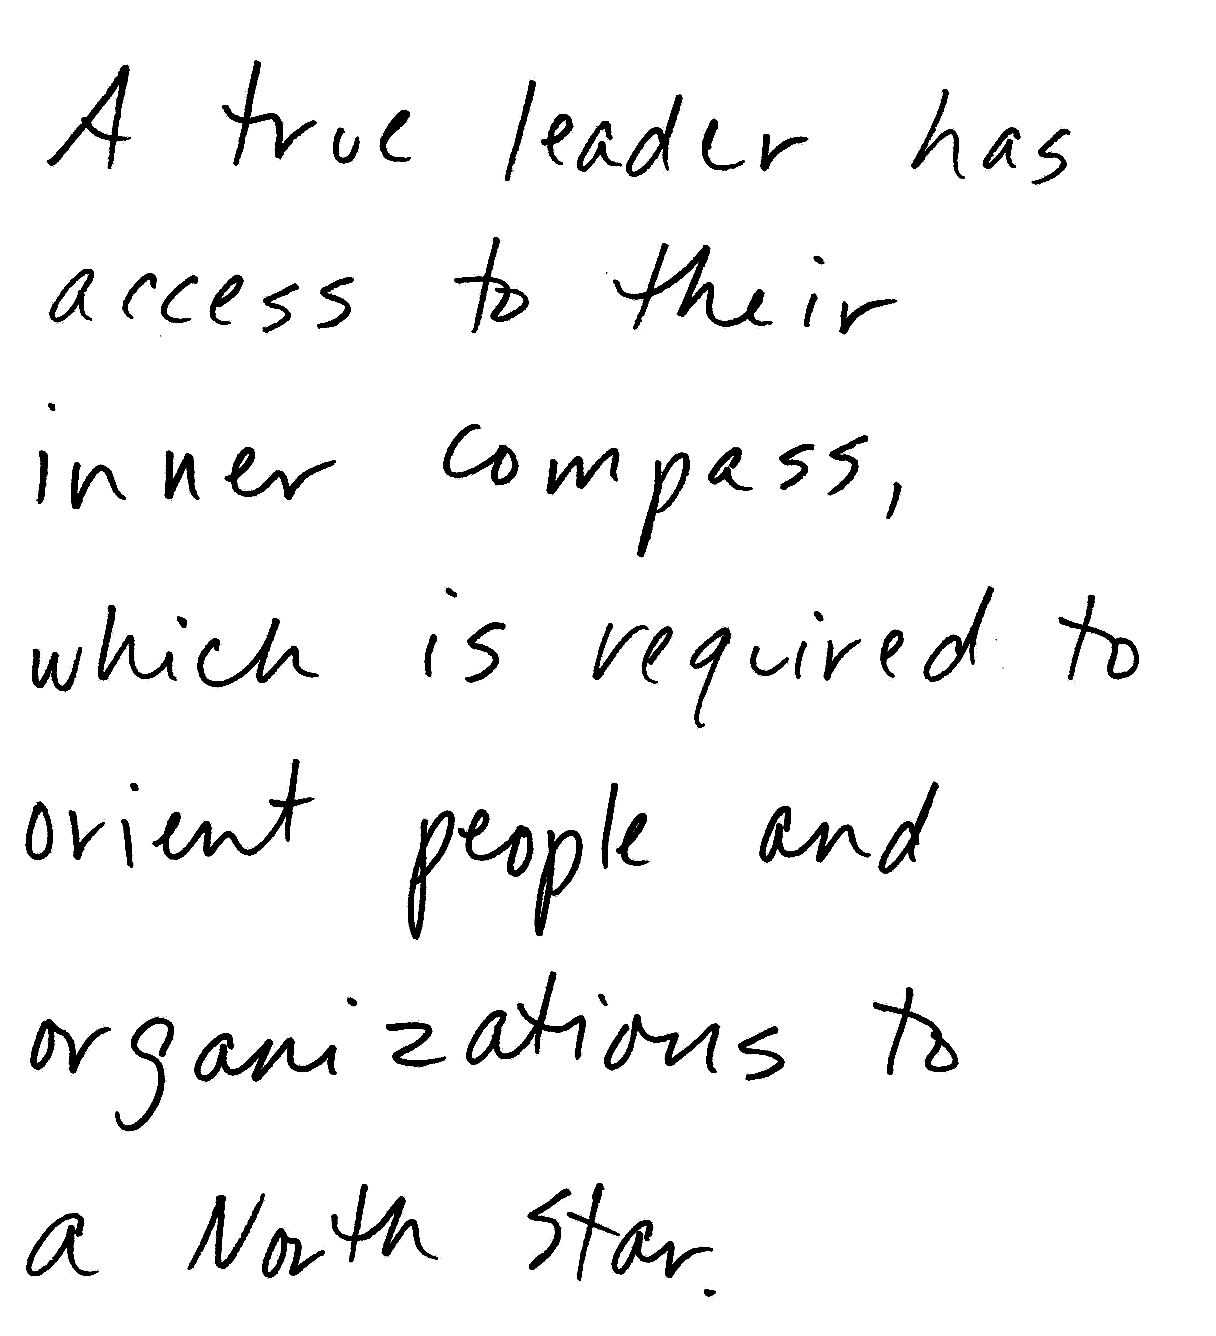 A true leader has
access to their
inner compass,
which is required to
orient people and
organizations to
a North Star.